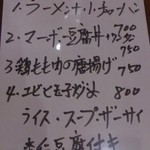 1.ラーメン+小チャーハン
700
2.マーボー豆腐丼
750
3.鶏もも肉の唐揚げ
750
4.エビと玉子炒め 800
ライス・スープ・ザーサイ
杏仁豆腐付き